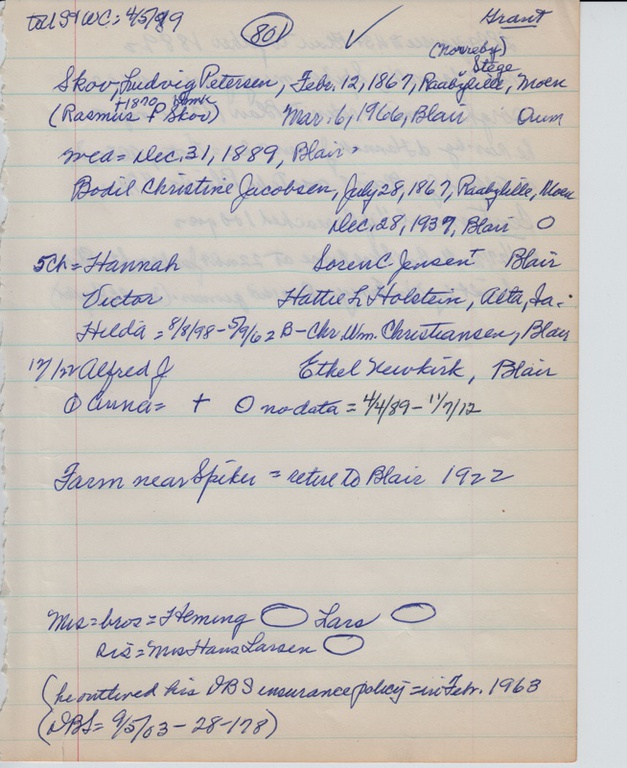 to US & WC = 4/5/89 (80) ✓ Grant
(Norreby)
Stege
Skov, Ludvig Petersen, Febr. 12, 1867, Raabylille, Moen
+1870
(Rasmus P Skov) Mar. 6, 1966, Blair Own
med = Dec. 31, 1889, Blair =
Bodil Christine Jacobsen, July 28, 1867, Raabylille, Moen
Dec. 28, 1937, Blair O
5 Ch = Hannah Soren C. Jensen + Blair
Victor Hattie L Holstein, Alta, Ia.
Hilda = 8/8/98 - 5/9/62 B - Chr. Wm. Christiansen, Blair
Alfred J Ethel Newkirk, Blair
O Anna = + O no data = 4/4/89 - 11/7/12
Farm near Spiker = retire to Blair 1922
Mrs = bros = Fleming O Lars O
sis = Mrs Hans Larsen O
(he outlined his DBS insurance policy = in Febr. 1963
(DBS = 9/5/03 - 28-178)